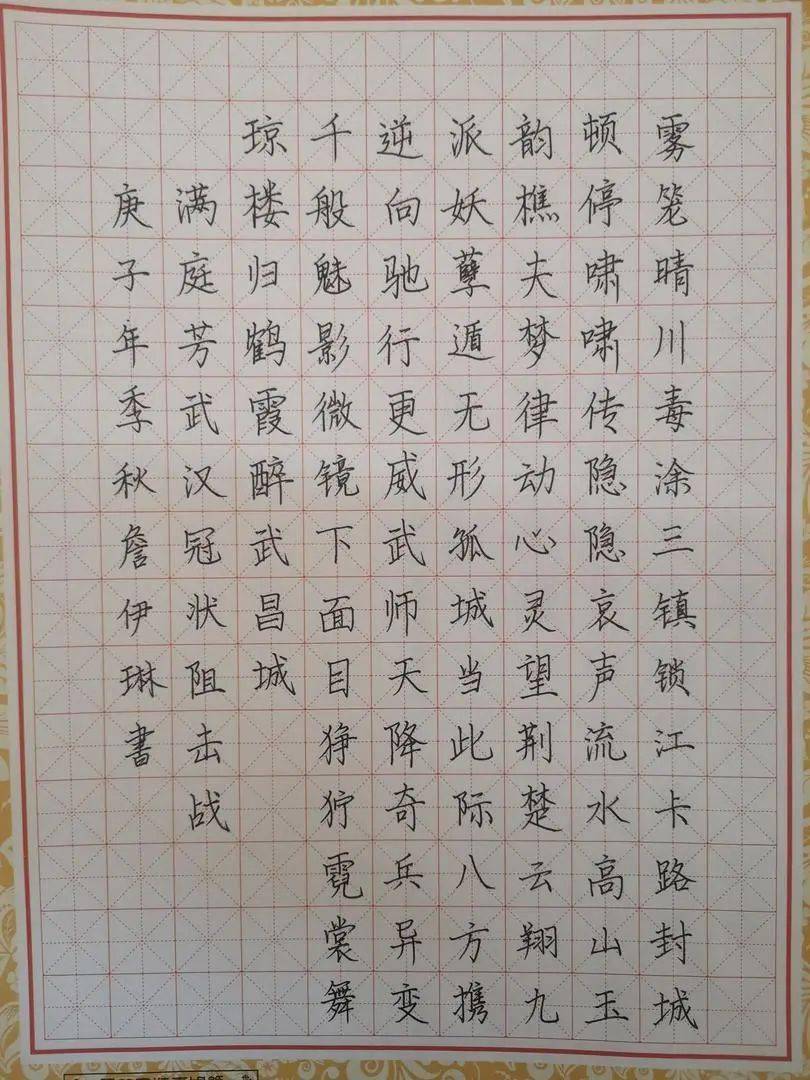 雾笼晴川毒涂三镇锁江卡路封城
顿停啸啸传隐隐哀声流水高山玉
韵樵夫梦律动心灵望荆楚云翔九
派妖孽遁无形孤城当此际八方携
逆向驰行更威武师天降奇兵异变
千般魅影微镜下面目狰狞霓裳舞
琼楼归鹤霞醉武昌城
满庭芳武汉冠状阻击战
庚子年季秋詹伊琳書